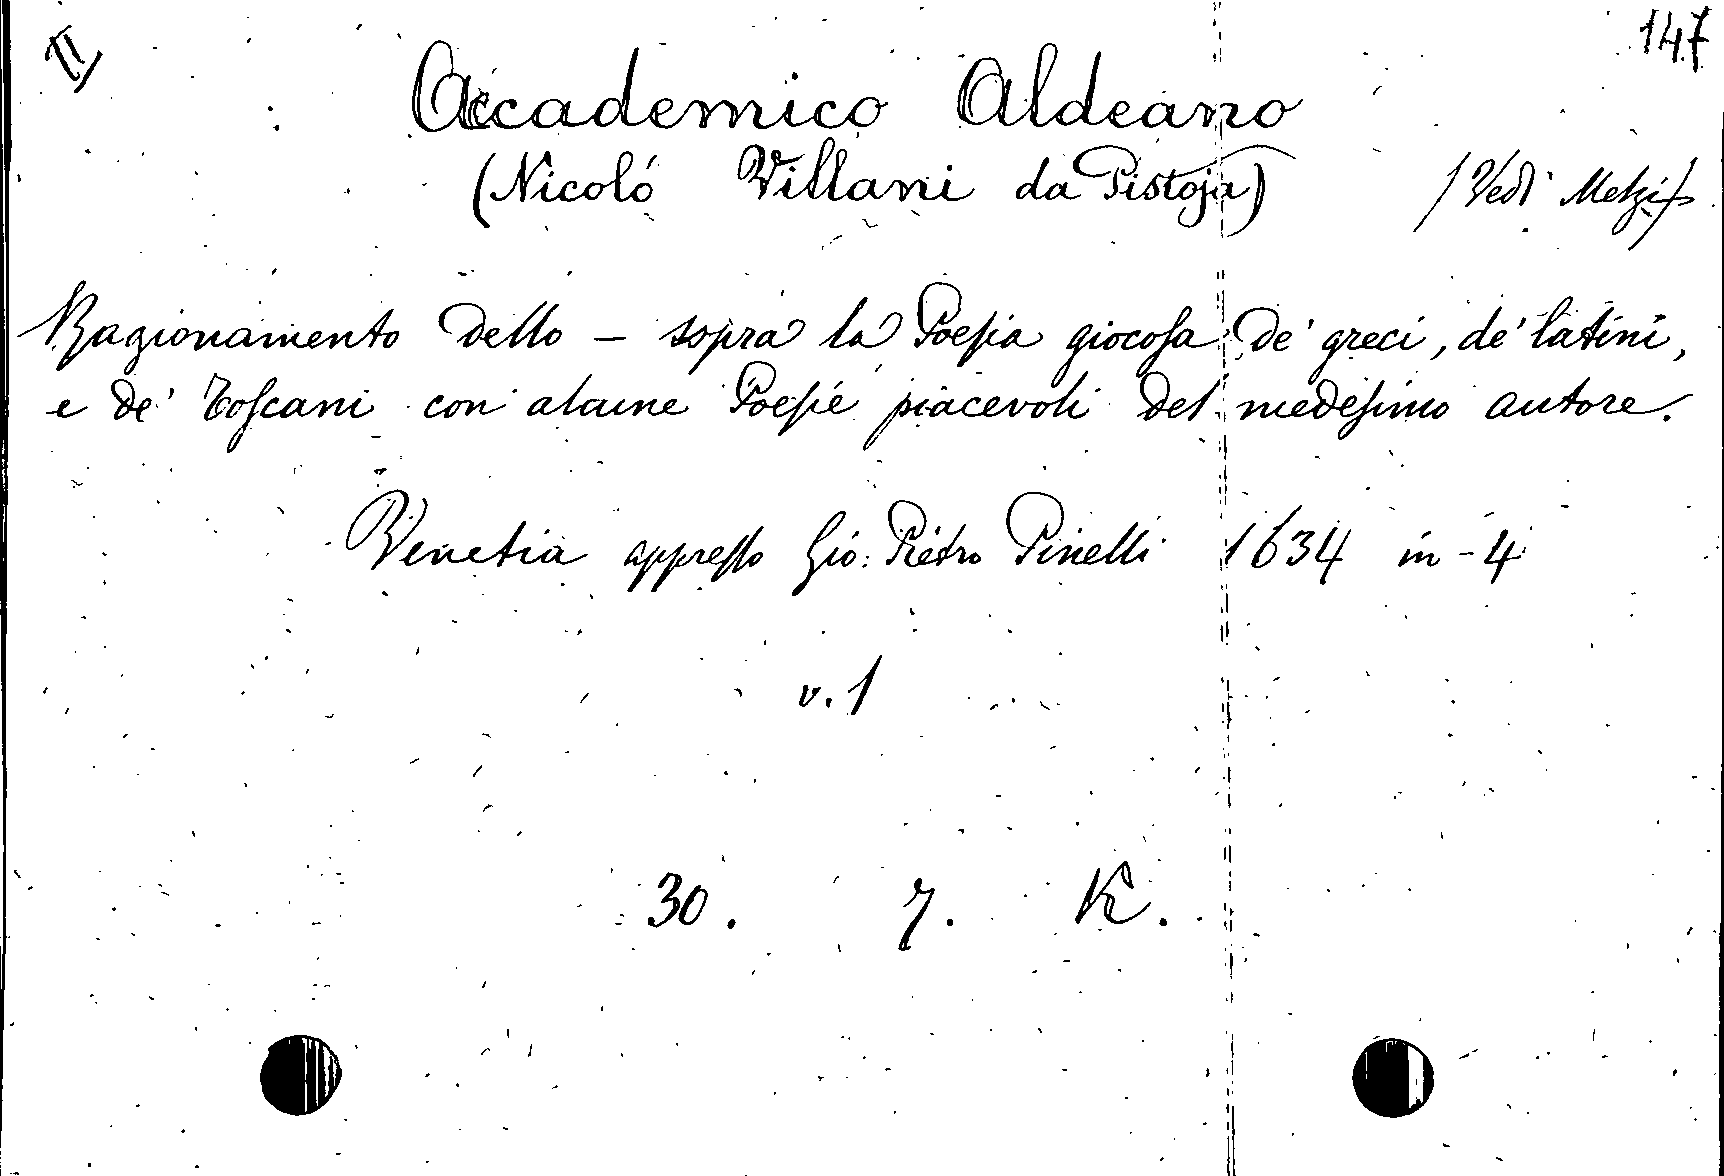 II
147
Accademico Aldeano
(Nicoló Villani da Pistoja)
/Vedi Melzi/
Ragionamento dello – sopra la Poesia giocosa de' greci, de' latini,
e de' Toscani con alcune Poesie piacevoli del medesimo autore.
Venetia appresso Gio: Pietro Pinelli 1634 in-4
v. 1
30. 7. K.